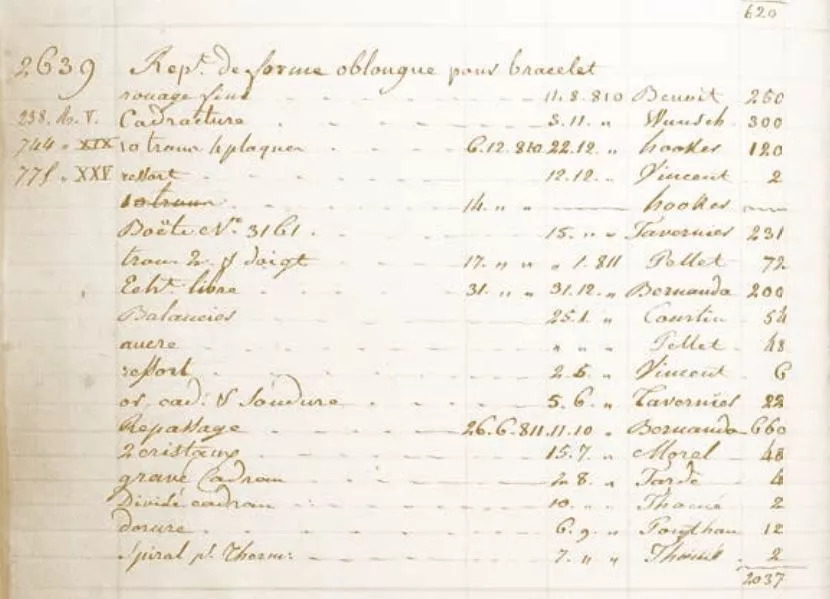 620
2639 Rept. de forme oblongue pour bracelet
rouage fini 11.8.810 Benoit 250
238. Rs. V. Cadracture 3.11. " Wunsch 300
744 " XIX 10 trous à plaquer 6.12.810 22.12. " hookes 120
775 " XXV ressort 12.12. " Vincent 2
10 trous 14. " " hookes
Boëte No. 3161. 15. " " Tavernier 231
trous 2 & doigt 17. " " " 1.811 Pellet 72
Echt. libre 31. " " 31.12. " Bernanda 200
Balancier 25.1. " Courtin 54
ancre " " " Pellet 48
ressort 2.5. " Vincent 6
or, cad: & Soudure 5.6. " Tavernier 22
Repassage 26.6.811. 11.10 " Bernanda 660
2 cristaux 15.7. " Morel 48
gravé Cadran 2.8. " Tarde 4
Divisé cadran 10. " " Thomé 2
dorure 6.9. " Pouthan 12
Spiral pr. Therm: 7. " " 2
2037